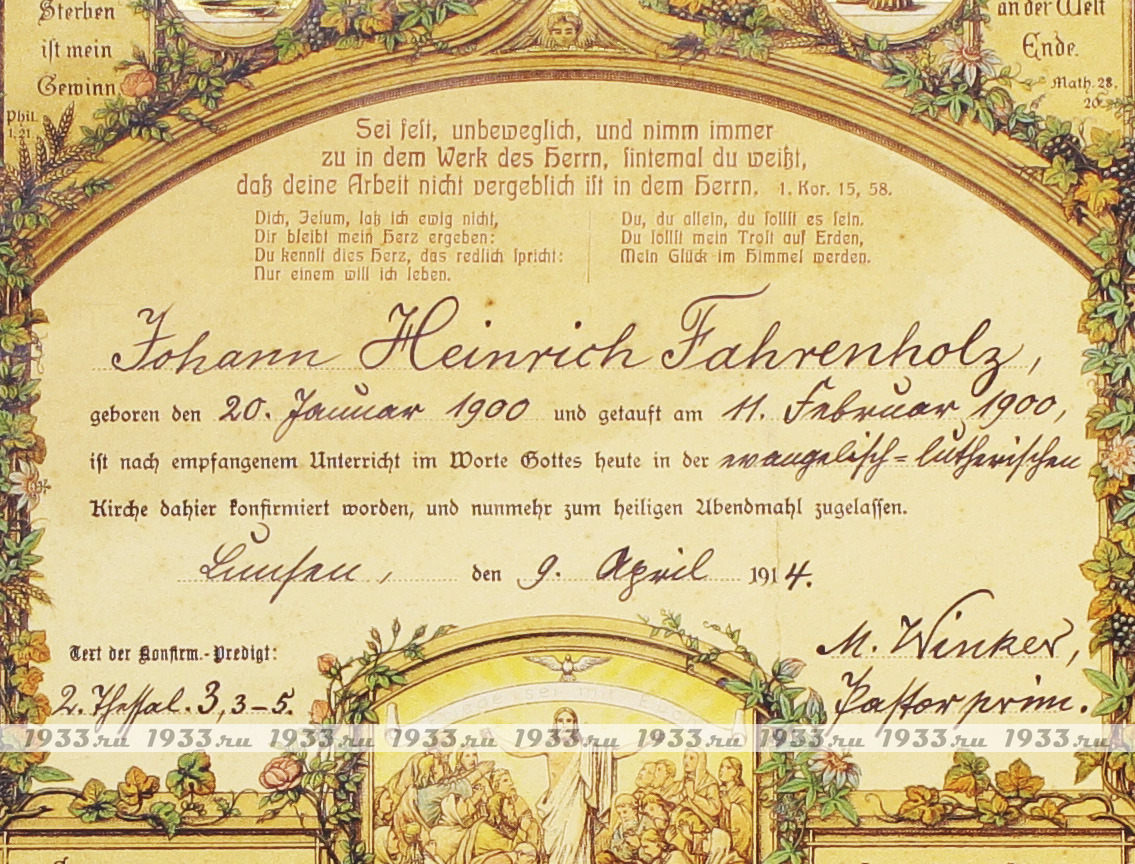 Sterben
ist mein
Gewinn
Phil.
1,21
an der Welt
Ende.
Math. 28,
20.
Sei fest, unbeweglich, und nimm immer
zu in dem Werk des Herrn, sintemal du weißt,
daß deine Arbeit nicht vergeblich ist in dem Herrn. 1. Kor. 15, 58.
Dich, Jesum, laß ich ewig nicht,
Dir bleibt mein Herz ergeben:
Du kennst dies Herz, das redlich spricht:
Nur einem will ich leben.
Du, du allein, du sollst es sein.
Du sollst mein Trost auf Erden,
Mein Glück im Himmel werden.
Johann Heinrich Fahrenholz,
geboren den 20. Januar 1900 und getauft am 11. Februar 1900,
ist nach empfangenem Unterricht im Worte Gottes heute in der evangelisch=lutherischen
Kirche dahier konfirmiert worden, und nunmehr zum heiligen Abendmahl zugelassen.
Lunsen, den 9. April 1914.
Text der Konfirm.-Predigt:
2. Thessal. 3, 3-5.
M. Winker,
Pastor prim.
Friede sei mit Euch
1933.ru 1933.ru 1933.ru 1933.ru 1933.ru 1933.ru 1933.ru 1933.ru 1933.ru